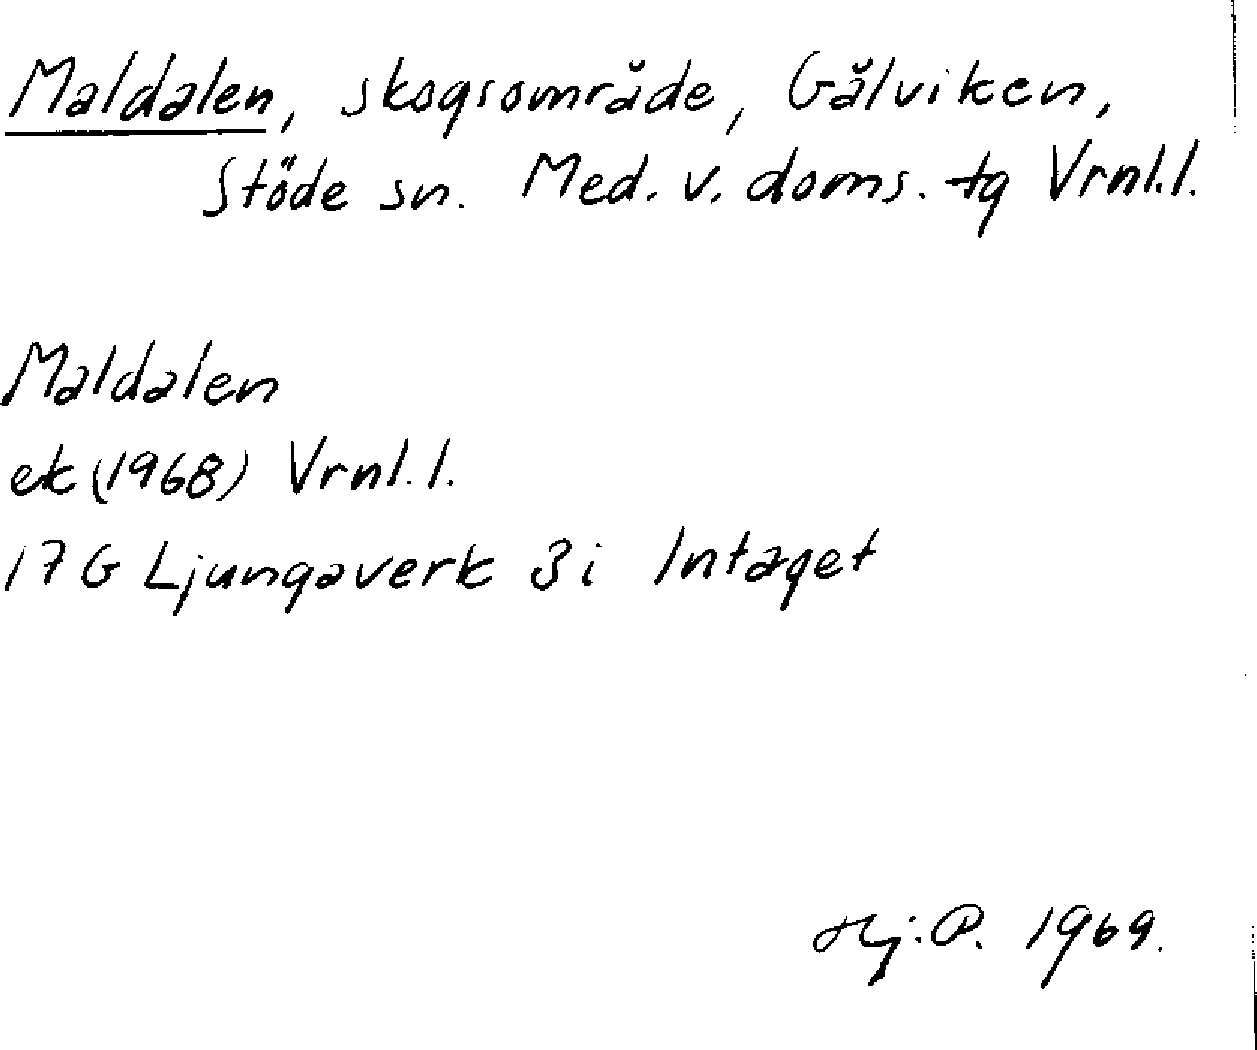 Maldalen, skogsområde, Gålviken,
Stöde sn. Med. v. doms. tg Vrnl.l.
Maldalen
ek (1968) Vrnl.l.
17 G Ljungaverk 3i Intaget
Hj.P. 1969.